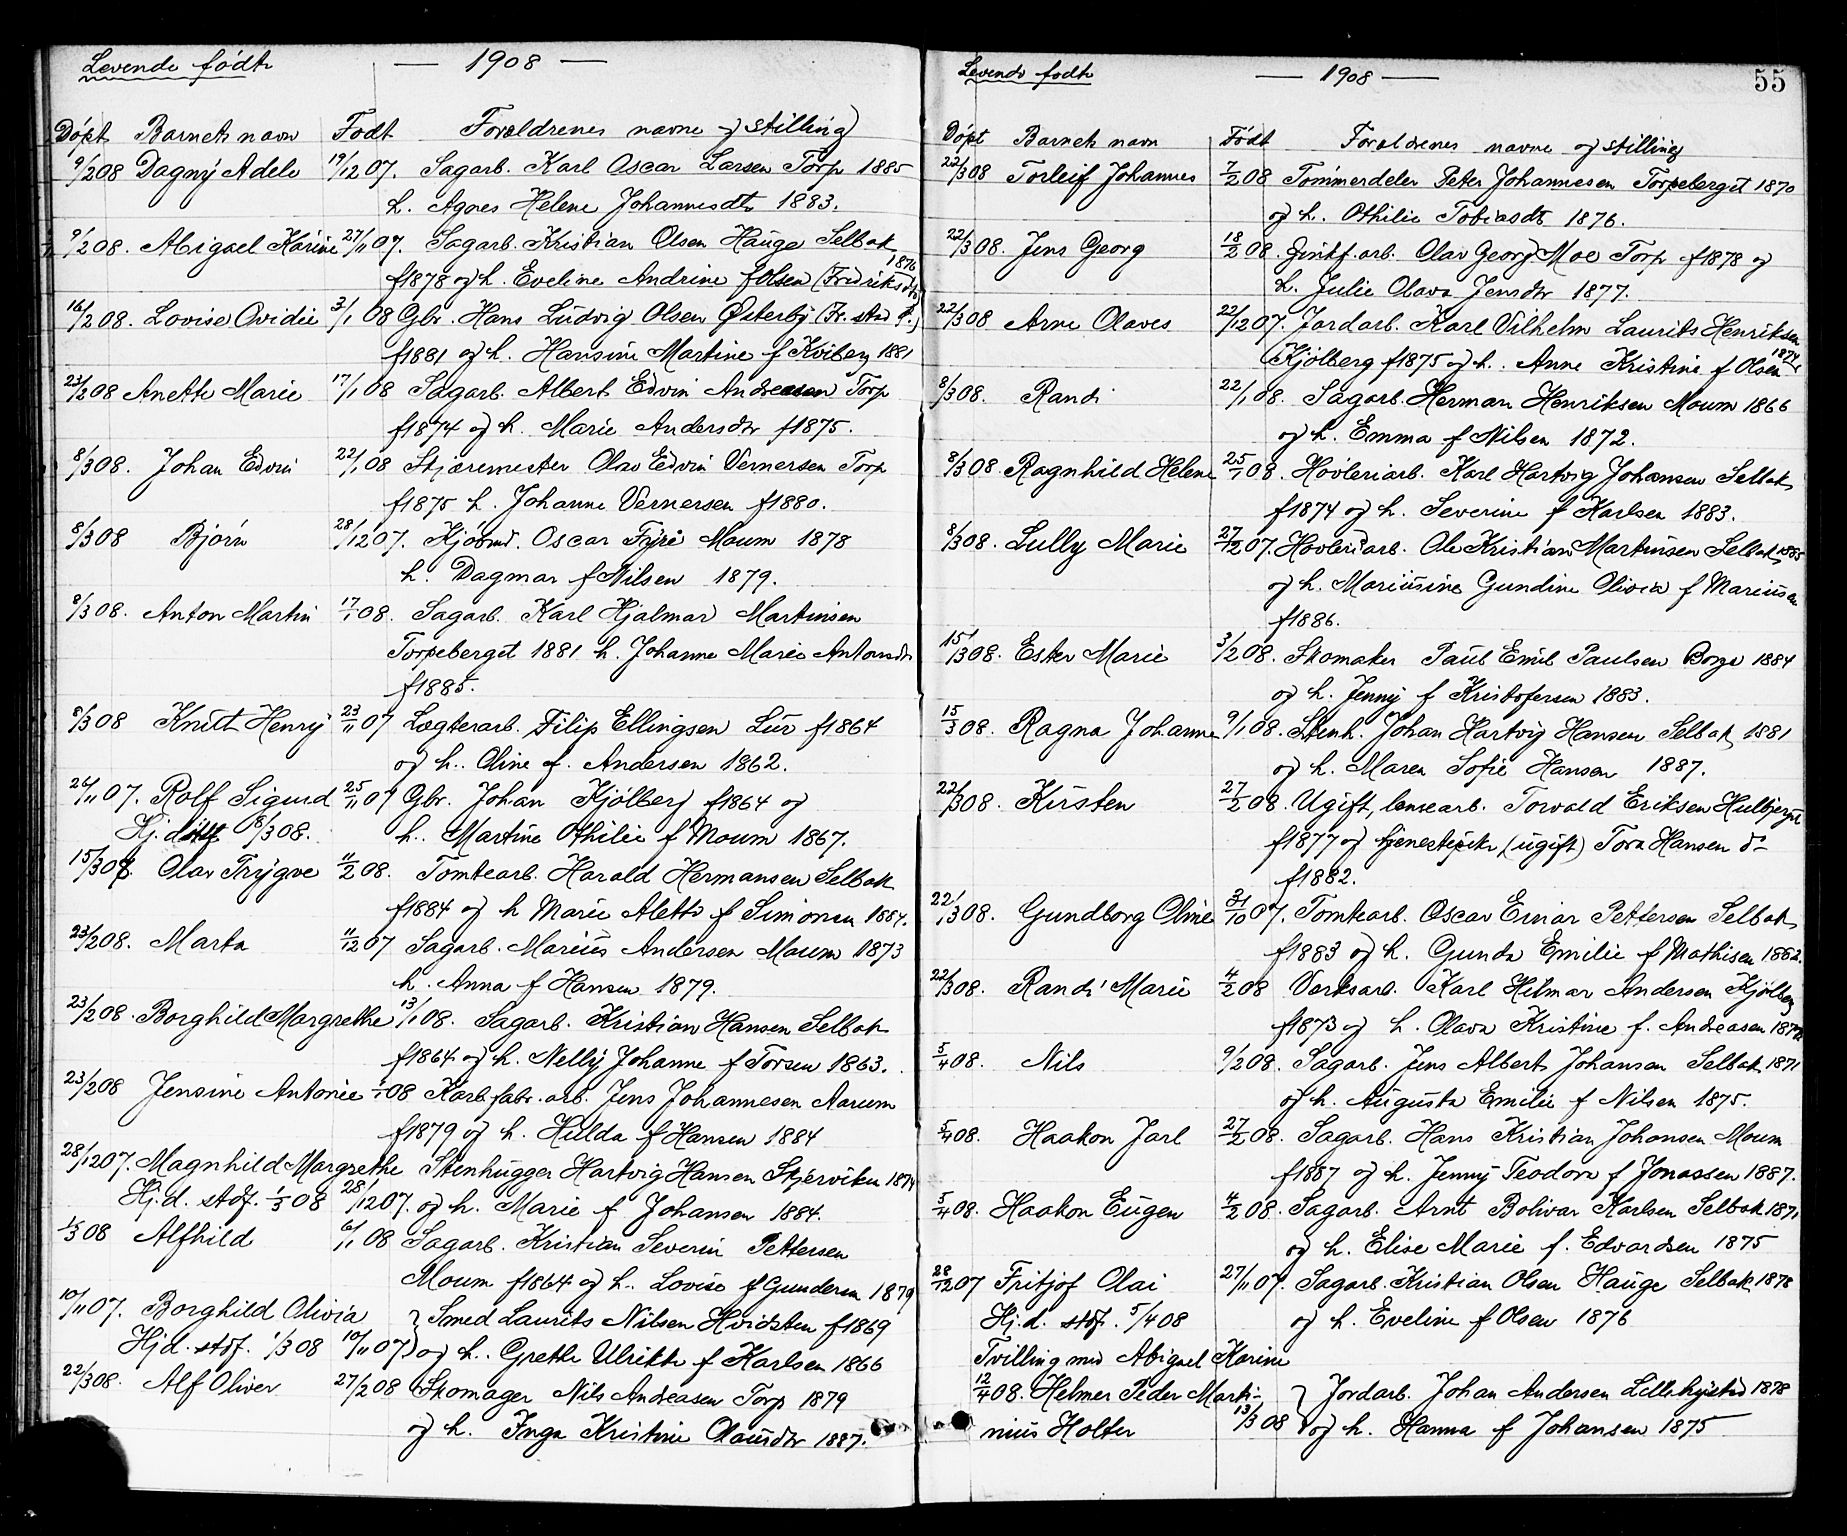 Levende födte — 1908 —
Döpt Barnets navn Födt Foreldrenes navne og stilling
9/2 08 Dagny Adele 19/12 07. Sagarb. Karl Oscar Larsen Torp 1885
h. Agnes Helene Johannesdtr 1883.
9/2 08. Abigael Karine 27/11 07. Sagarb. Kristian Olsen Hauge Selbak
f 1878 og h. Eveline Andrine f Olsen (Fredriksdtr) 1876
16/2 08. Lovise Ovidie 3/1 08 Gbr. Hans Ludvig Olsen Österby (Fr. stad)
f 1881 og h. Hansine Martine f Kviberg 1881
23/2 08 Anette Marie 17/1 08 Sagarb. Albert Edvin Andreasen Torp
f 1874 og h. Marie Andersdtr f 1875.
8/3 08. Johan Edvin 22/1 08 Skjæremester Olav Edvin Vernersen Torp
f 1875 h. Johanne Vernersen f 1880.
8/3 08 Bjørn 28/12 07. Kjöbmd. Oscar Fyrie Moum 1878
h. Dagmar f Nilsen 1879.
8/3 08. Anton Martin 17/1 08. Sagarb. Karl Hjalmar Martinsen
Torpeberget 1881 h. Johanne Marie Antonsdtr
f 1885.
8/3 08 Knutt Henry 23/11 07 Lægterarb. Filip Ellingsen Lur f 1864
og h. Oline f. Andersen 1862.
26/11 07. Rolf Sigurd 25/11 07 Gbr. Johan Kjölberg f 1864 og
Hj. döbt 8/3 08. h. Martine Othilie f Moum 1867.
15/3 08. Olav Trygve 11/2 08. Tomtearb. Harald Hermansen Selbak
f 1884 og h Marie Alette f Simonsen 1884.
23/2 08. Marta 11/12 07 Sagarb. Marius Andersen Moum 1873
h. Anna f Hansen 1879.
23/2 08. Borghild Margrethe 13/1 08. Sagarb. Kristian Hansen Selbak
f 1864 og h. Nelly Johanne f Torsen 1863.
23/2 08 Jensine Antonie 1/1 08 Karb. fabr. arb. Jens Johannesen Aarum
f 1879 og h. Hulda f Hansen 1884
28/12 07. Magnhild Margrethe Stenhugger Hartvig Hansen Skjærviken 1874
Hj. d. stdf. 1/3 08 28/12 07. og h. Marie f Johansen 1884.
1/3 08 Alfhild 6/1 08 Sagarb. Kristian Severin Pettersen
Moum f 1864 og h. Lovise f Gundersen 1879
10/11 07. Borghild Olivia } Smed Laurits Nilsen Hvidsten f 1869
Hjd. stdf. 1/3 08 10/11 07) og h. Grethe Ulrikke f Karlsen 1866
22/3 08. Alf Oliver 27/2 08 Skomager Nils Andreasen Torp 1879
og h. Inga Kristine Olausdtr 1887.
Levende födte — 1908 — 55
Döpt Barnets navn Födt Foreldrenes navne og stilling
22/3 08 Torleif Johannes 7/2 08 Tömmerdeler Peter Johannesen Torpeberget 1870
og h. Othilie Tobiasdtr 1876.
22/3 08. Jens Georg 18/2 08. Zinkf. arb. Olav Georg Moe Torp f 1878 og
h. Julie Olava Jensdtr 1877.
22/3 08 Arne Olaves 22/12 07. Jordarb. Karl Vilhelm Laurits Henriksen
Kjölberg f 1875 og h. Anne Kristine f Olsen 1874
8/3 08. Randi 22/1 08. Sagarb. Herman Henriksen Moum 1866
og h. Emma f Nilsen 1872.
8/3 08. Ragnhild Helene 25/1 08. Hövleriarb. Karl Hartvig Johansen Selbak
f 1874 og h. Severine f Karlsen 1883.
8/3 08. Lully Marie 27/12 07. Hövleriarb. Ole Kristian Martinsen Selbak 1885
og h. Mariusine Gundine Olivia f Mariusen
f 1886.
15/3 08. Ester Marie 3/2 08. Skomaker Paul Emil Paulsen Borge 1884
og h. Jenny f Kristofersen 1883.
15/3 08. Ragna Johanne 9/1 08. Stenh. Johan Hartvig Hansen Selbak 1881
og h. Maren Sofie Hansen 1887.
22/3 08. Kirsten 27/2 08. Ugift, lensearb. Torvald Eriksen Hulbjergst
f 1877 og tjenestepike (ugift) Tora Hansen d-
f 1882.
22/3 08. Gundborg Oline 31/10 07. Tomtearb. Oscar Einar Pettersen Selbak
f 1883 og h. Gunda Emilie f Mathisen 1882.
22/3 08. Randi Marie 4/2 08 Verksarb. Karl Hilmar Andersen Kjölberg
f 1873 og h. Olava Kristine f. Andreasen
5/4 08. Nils 9/2 08. Sagarb. Jens Albert Johansen Selbak 1871
og h. Augusta Emilie f Nilsen 1875.
5/4 08. Haakon Jarl 27/2 08. Sagarb. Hans Kristian Johansen Moum
f 1887 og h. Jenny Teodora f Jonassen 1887.
5/4 08. Haakon Eugen 4/2 08. Sagarb. Arnt Bolivar Karlsen Selbak 1871
og h. Elise Marie f. Edvardsen 1875
28/12 07 Fritjof Olai 27/11 07. Sagarb. Kristian Olsen Hauge Selbak 1878
Hj. d. stdf. 5/4 08 og h. Eveline f Olsen 1876
Tvilling med Abigael Karine
12/4 08. Helmer Peder Marti- } Jordarb. Johan Andersen Lillehystad 1878
nius Holter 13/3 08 og h. Hanna f Johansen 1875